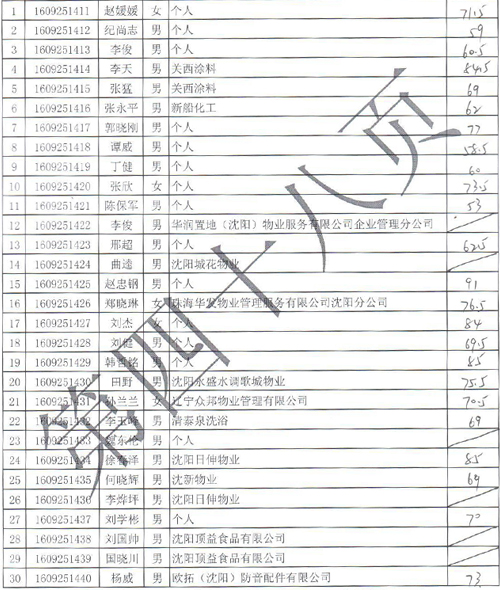 1 1609251411 赵媛媛 女 个人 71.5
2 1609251412 纪尚志 男 个人 59
3 1609251413 李俊 男 个人 60.5
4 1609251414 李天 男 关西涂料 84.5
5 1609251415 张猛 男 关西涂料 69
6 1609251416 张永平 男 新船化工 62
7 1609251417 郭晓刚 男 个人 77
8 1609251418 谭威 男 个人 58.5
9 1609251419 丁健 男 个人 60
10 1609251420 张欣 女 个人 73.5
11 1609251421 陈保军 男 个人 53
12 1609251422 李俊 男 华润置地（沈阳）物业服务有限公司企业管理分公司
13 1609251423 邢超 男 个人 62.5
14 1609251424 曲逵 男 沈阳城花物业
15 1609251425 赵忠钢 男 个人 91
16 1609251426 郑晓琳 女 珠海华发物业管理服务有限公司沈阳分公司 76.5
17 1609251427 刘杰 女 个人 84
18 1609251428 刘健 男 个人 69.5
19 1609251429 韩哲铭 男 个人 85
20 1609251430 田野 男 沈阳水盛水调歌城物业 75.5
21 1609251431 孙兰兰 女 辽宁众邦物业管理有限公司 70.5
22 1609251432 李玉 男 清泰泉洗浴 69
23 1609251433 东伦 男 个人
24 1609251434 徐春泽 男 沈阳日伸物业 85
25 1609251435 何晓辉 男 沈新物业 69
26 1609251436 李烨坪 男 沈阳日伸物业
27 1609251437 刘学彬 男 个人 70
28 1609251438 刘国帅 男 沈阳顶益食品有限公司
29 1609251439 国晓川 男 沈阳顶益食品有限公司
30 1609251440 杨威 男 欧拓（沈阳）防音配件有限公司 73
第四十八页